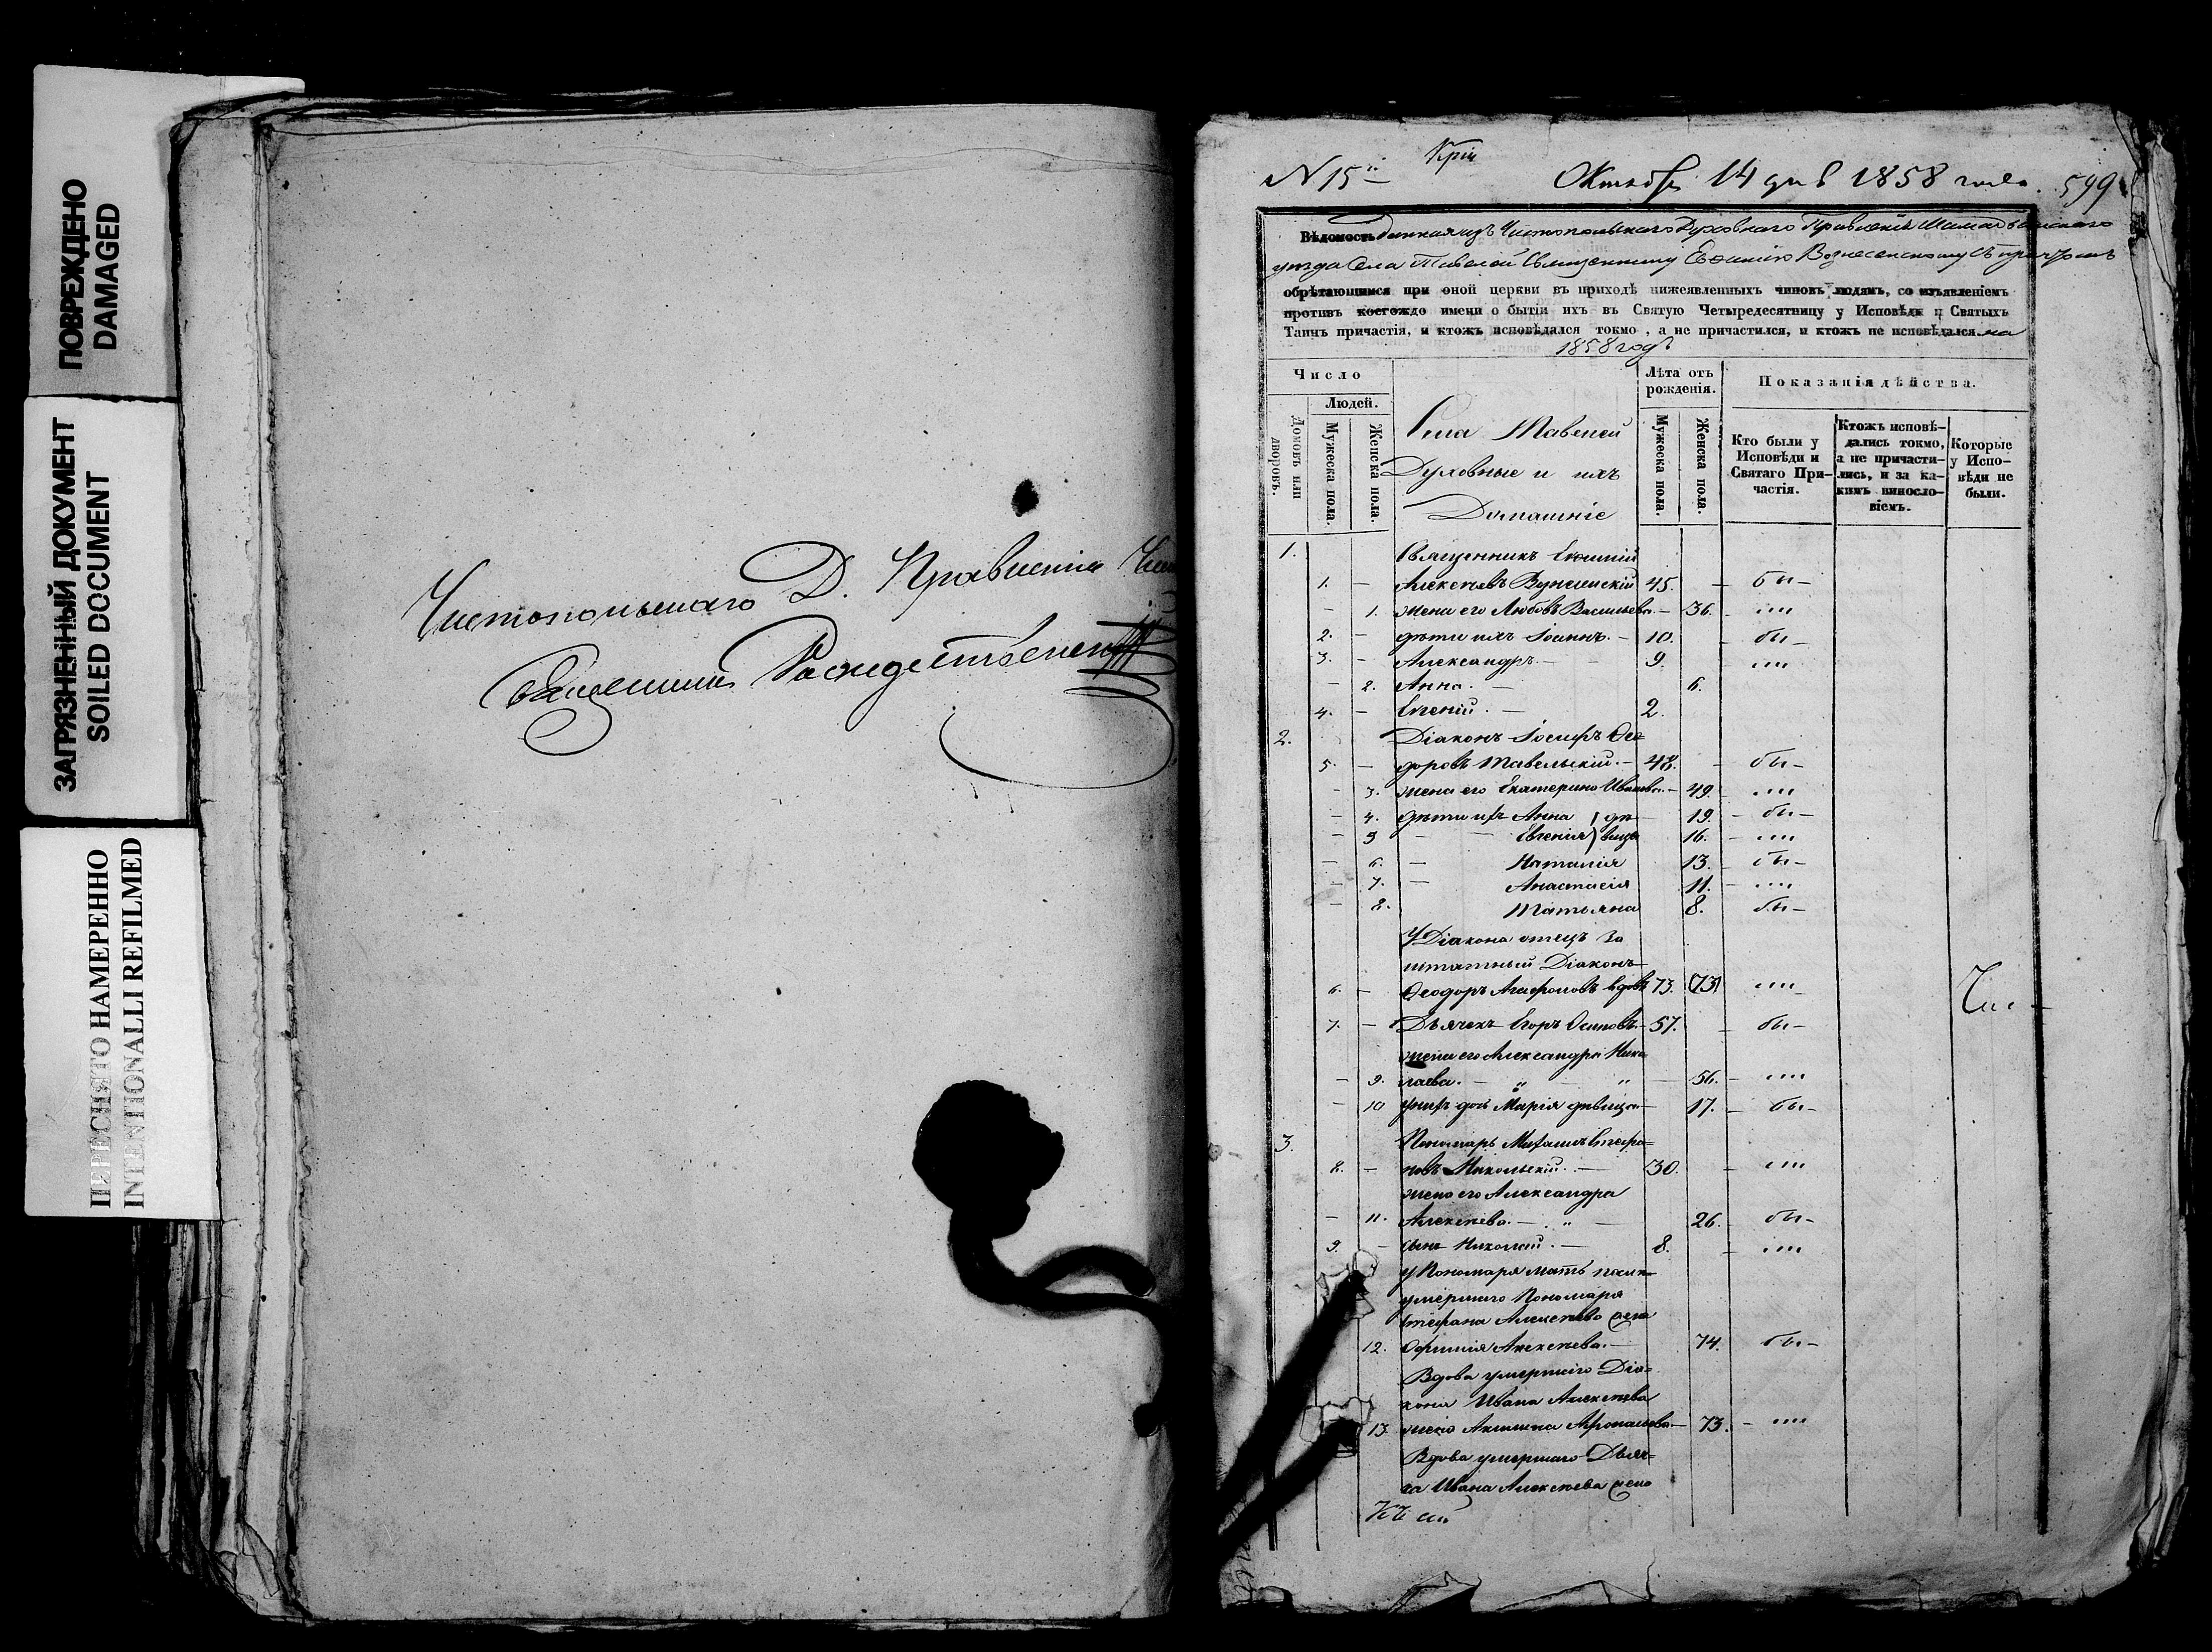 ПОВРЕЖДЕНО
DAMAGED
ЗАГРЯЗНЕННЫЙ ДОКУМЕНТ
SOILED DOCUMENT
ПЕРЕСНЯТО НАМЕРЕННО
INTENTIONALLI REFILMED
Чистопольскаго Д. Правленія
Священникъ Рождественскій
N 15й
Октября 14 дня 1858 года. 599
Вѣдомость данная изъ Чистопольскаго Духовнаго Правленія
уѣзда Села Тавелей Священнику Евѳимію Вознесенскому съ причтомъ
обрѣтающимся при оной церкви въ приходѣ нижеявленныхъ чиновъ людямъ, со изъявленіемъ
противъ коегождо имени о бытіи ихъ въ Святую Четыредесятницу у Исповѣди и Святыхъ
Таинъ причастія, и ктожъ исповѣдался токмо, а не причастился, и ктожъ не исповѣдался на
1858 годъ
Число
Людей.
Домовъ или дворовъ.
Мужеска пола.
Женска пола.
Села Тавелей
Духовные и ихъ
Домашніе
Лѣта отъ рожденія.
Мужеска пола.
Женска пола.
Показанія дѣйства.
Кто были у Исповѣди и Святаго Причастія.
Ктожъ исповѣдались токмо, а не причастились, и за какимъ винословіемъ.
Которые у Исповѣди не были.
1. Священникъ Евѳимій
1. – Алексѣевъ Вознесенскій 45. – бы –
– 1. жена его Любовь Васильева. – 36. – ""
2. – дѣти ихъ Іоаннъ. – 10. – бы –
3. – Александръ. – 9. ""
– 2. Анна. – 6.
4. – Евгеній. – 2.
2. Діаконъ Іосифъ Ѳео-
5. – доровъ Тавельскій. – 48. – бы –
– 3. жена его Екатерина Иванова. – 49. – ""
– 4. дѣти ихъ Анна } дѣ- 19. – бы –
– 5 – Евгенія } вицы 16. – ""
– 6. – Наталія 13. – бы –
– 7. – Анастасія 11. – ""
– 8. Татьяна 8. – бы –
У Діакона отецъ за
штатный Діаконъ
6. – Ѳеодоръ Агафоновъ вдовъ 73. (73) ""
7. – Дьячекъ Егоръ Осиповъ – 57. – бы –
жена его Александра Нико
– 9. лаева. – " – " – 56. – ""
– 10 у нихъ дочь Марія дѣвица – 17. – бы –
3. Пономарь Михаилъ Стефа=
8. – новъ Никольскій. – 30. – ""
жена его Александра
– 11. Алексѣева. – " – 26. – бы –
9. – сынъ Николай. – 8. – ""
у Пономаря мать послѣ
умершаго Пономаря
Стефана Алексѣева жена
12. Алексѣева. – 74. бы –
Вдова умершаго Діа=
кона Ивана Алексѣева
13. жена Акилина – 73. – ""
Вдова умершаго Дьяч=
ка Ивана Алексѣева жена